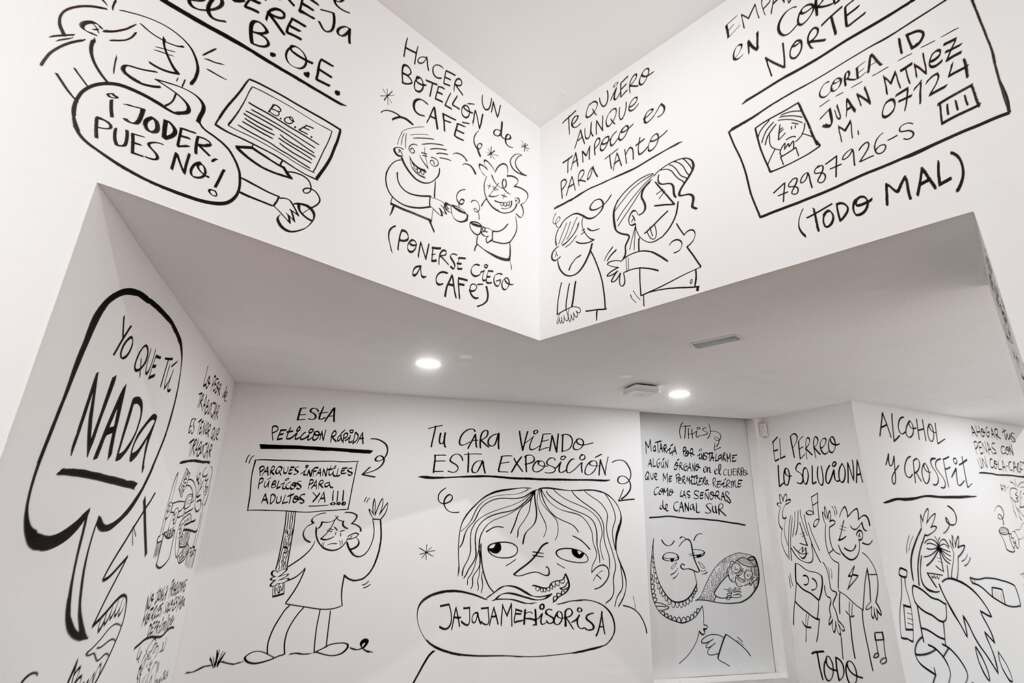 el B.O.E.
¡JODER,
PUES NO!
B.O.E.
HACER UN
BOTELLÓN de
CAFÉ
(PONERSE CIEGO
a CAFÉ)
Te QUIERO
AUNQUE
TAMPOCO es
PARA TANTO
en COREA
NORTE
COREA ID
JUAN MTNEZ
M. 0724
78987926-S
(TODO MAL)
YO QUE TÚ
NADA
ESTA
PETICIÓN RÁPIDA
PARQUES INFANTILES
PÚBLICOS PARA
ADULTOS YA!!!
Tu CARA VIENDO
ESTA EXPOSICIÓN
JAJAJAMEHISORISA
(THIS)
MATARÍA POR INSTALARME
ALGÚN ÓRGANO en el CUERPO
QUE ME PERMITIERA REÍRME
COMO LAS SEÑORAS
DE CANAL SUR
EL PERREO
LO SOLUCIONA
TODO
ALCOHOL
y CROSSFIT
AHOGAR TUS
PENAS CON
UN COLA-CAO